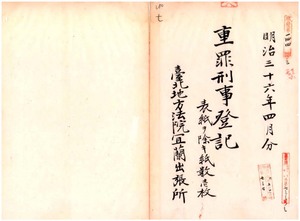 明治三十六年四月分
重罪刑事登記
表紙ヲ除キ紙數
臺北地方法院宜蘭出張所